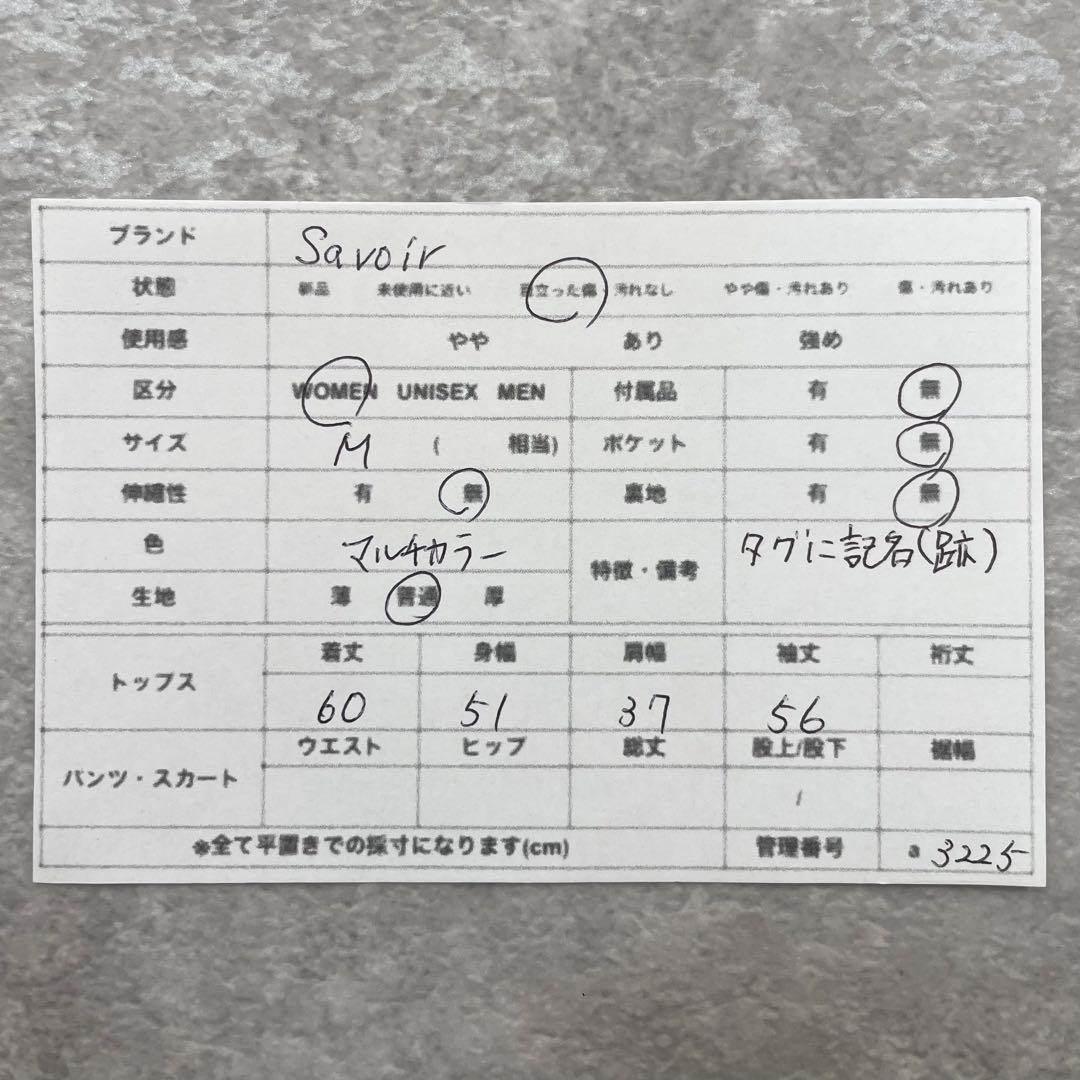 ブランド Savoir
状態 新品 未使用に近い 目立った傷・汚れなし やや傷・汚れあり 傷・汚れあり
使用感 やや あり 強め
区分 WOMEN UNISEX MEN 付属品 有 無
サイズ M ( 相当) ポケット 有 無
伸縮性 有 無 裏地 有 無
色 マルチカラー 特徴・備考 タグに記名(跡)
生地 薄 普通 厚
トップス 着丈 身幅 肩幅 袖丈 裄丈
60 51 37 56
パンツ・スカート ウエスト ヒップ 総丈 股上/股下 裾幅
/
※全て平置きでの採寸になります(cm) 管理番号 a 3225